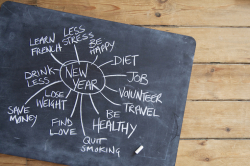 LEARN
FRENCH
LESS
STRESS
BE
HAPPY
DIET
JOB
VOLUNTEER
TRAVEL
BE
HEALTHY
QUIT
SMOKING
FIND
LOVE
SAVE
MONEY
LOSE
WEIGHT
DRINK
LESS
NEW
YEAR